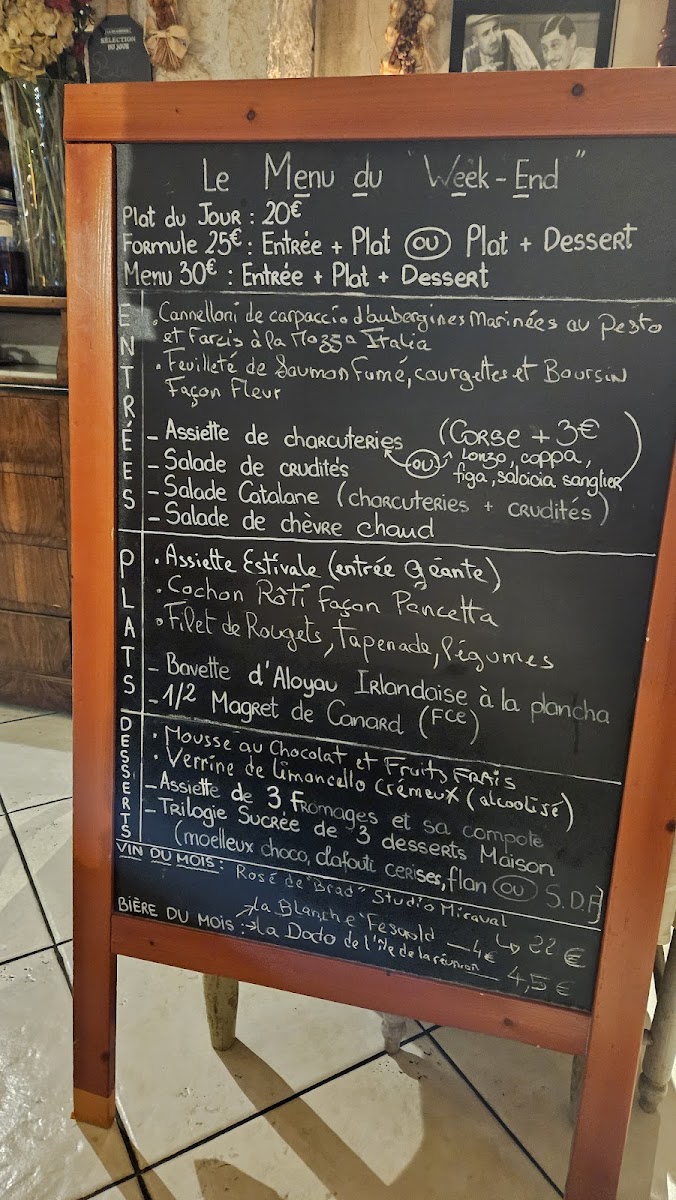 SÉLECTION
DU JOUR
Le Menu du "Week-End"
Plat du Jour : 20€
Formule 25€ : Entrée + Plat (OU) Plat + Dessert
Menu 30€ : Entrée + Plat + Dessert
ENTRÉES
. Cannelloni de carpaccio d'aubergines Marinées au Pesto
et Farcis à la Mozza Italia
. Feuilleté de Saumon Fumé, courgettes et Boursin
Façon Fleur
- Assiette de charcuteries (CORSE + 3€
(OU) Lonzo, coppa,
figa, salcicia sanglier)
- Salade de crudités
- Salade Catalane (charcuteries + crudités)
- Salade de chèvre chaud
PLATS
. Assiette Estivale (entrée Géante)
. Cochon Rôti façon Pancetta
. Filet de Rougets, tapenade, légumes
- Bavette d'Aloyau Irlandaise à la plancha
- 1/2 Magret de Canard (FCE)
DESSERTS
. Mousse au Chocolat et Fruits FRAIS
. Verrine de Limoncello Crémeux (alcoolisé)
- Assiette de 3 fromages et sa compote
- Trilogie Sucrée de 3 desserts Maison
(moelleux choco, clafouti cerises, flan (OU) S.D.F)
VIN DU MOIS : Rosé de "Brad" Studio Miraval
22 €
BIÈRE DU MOIS : la Blanche — 4€
la Dodo de l'île de la réunion — 4,5€